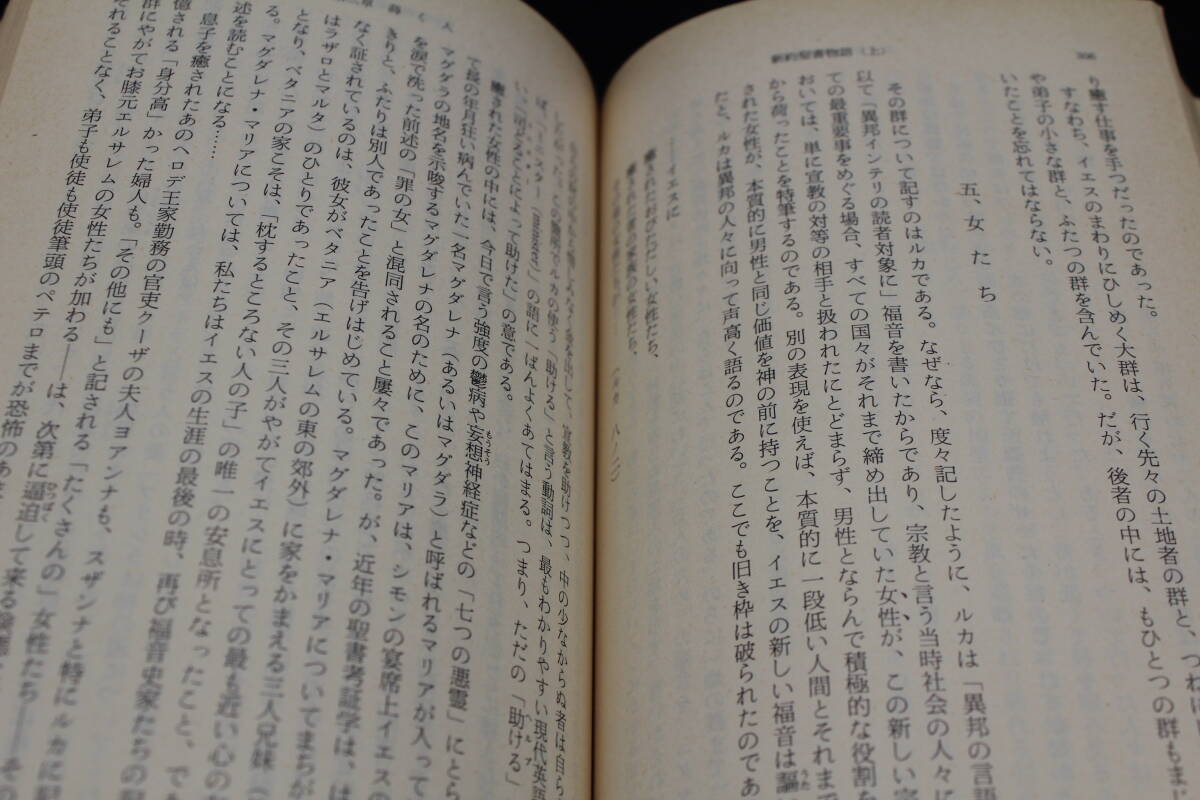 新約聖書物語(上)
り癒す仕事を手つだったのであった。
すなわち、イエスのまわりにひしめく大群は、行く先々の土地者の群と、つねに
や弟子の小さな群と、ふたつの群を含んでいた。だが、後者の中には、もひとつの群もまじ
いたことを忘れてはならない。
五、女たち
その群について記すのはルカである。なぜなら、度々記したように、ルカは「異邦の言語
以て「異邦インテリの読者対象に」福音を書いたからであり、宗教と言う当時社会の人々に
ての最重要事をめぐる場合、すべての国々がそれまで締め出していた女性が、この新しい宗
おいては、単に宣教の対等の相手と扱われたにとどまらず、男性とならんで積極的な役割を
から荷ったことを特筆するのである。別の表現を使えば、本質的に一段低い人間とそれまで
された女性が、本質的に男性と同じ価値を神の前に持つことを、イエスの新しい福音は謳
たと、ルカは異邦の人々に向って声高く語るのである。ここでも旧き枠は破られたのであ
――イエスに
癒されたおびただしい女性たち、
癒された者の家族の女性たち、
(ルカ 八ノ三)
宣教を助けつつ、中の少なからぬ者は自ら
この箇所でルカの使う「助ける」と言う動詞は、最もわかりやすい現代英語
の語に一ばんよくあてはまる。つまり、ただの「助ける」
によって助けた」の意である。
癒された女性の中には、今日で言う強度の鬱病や妄想神経症などの「七つの悪霊」にとら
て長の年月狂い病んでいた一名マグダレナ(あるいはマグダラ)と呼ばれるマリアが入って
マグダラの地名を示唆するマグダレナの名のために、このマリアは、シモンの宴席上イエスの
を涙で洗った前述の「罪の女」と混同されること屡々であった。が、近年の聖書考証学は、は
きりと、ふたりは別人であったことを告げはじめている。マグダレナ・マリアについてまちが
なく証されているのは、彼女がベタニア(エルサレムの東の郊外)に家をかまえる三人兄妹(
はラザロとマルタ)のひとりであったこと、その三人がやがてイエスにとっての最も近い心の
となり、ベタニアの家こそは、「枕するところない人の子」の唯一の安息所となったこと、で
る。マグダレナ・マリアについては、私たちはイエスの生涯の最後の時、再び福音史家たちの
述を読むことになる……
息子を癒されたあのヘロデ王家勤務の官吏クーザの夫人ヨアンナも、スザンナと特にルカに記
憶される「身分高」かった婦人も。「その他にも」と記される「たくさんの」女性たち――その
群にやがてお膝元エルサレムの女性たちが加わる――は、次第に逼迫して来る
それることなく、弟子も使徒も使徒筆頭のペテロまでが恐怖のあ